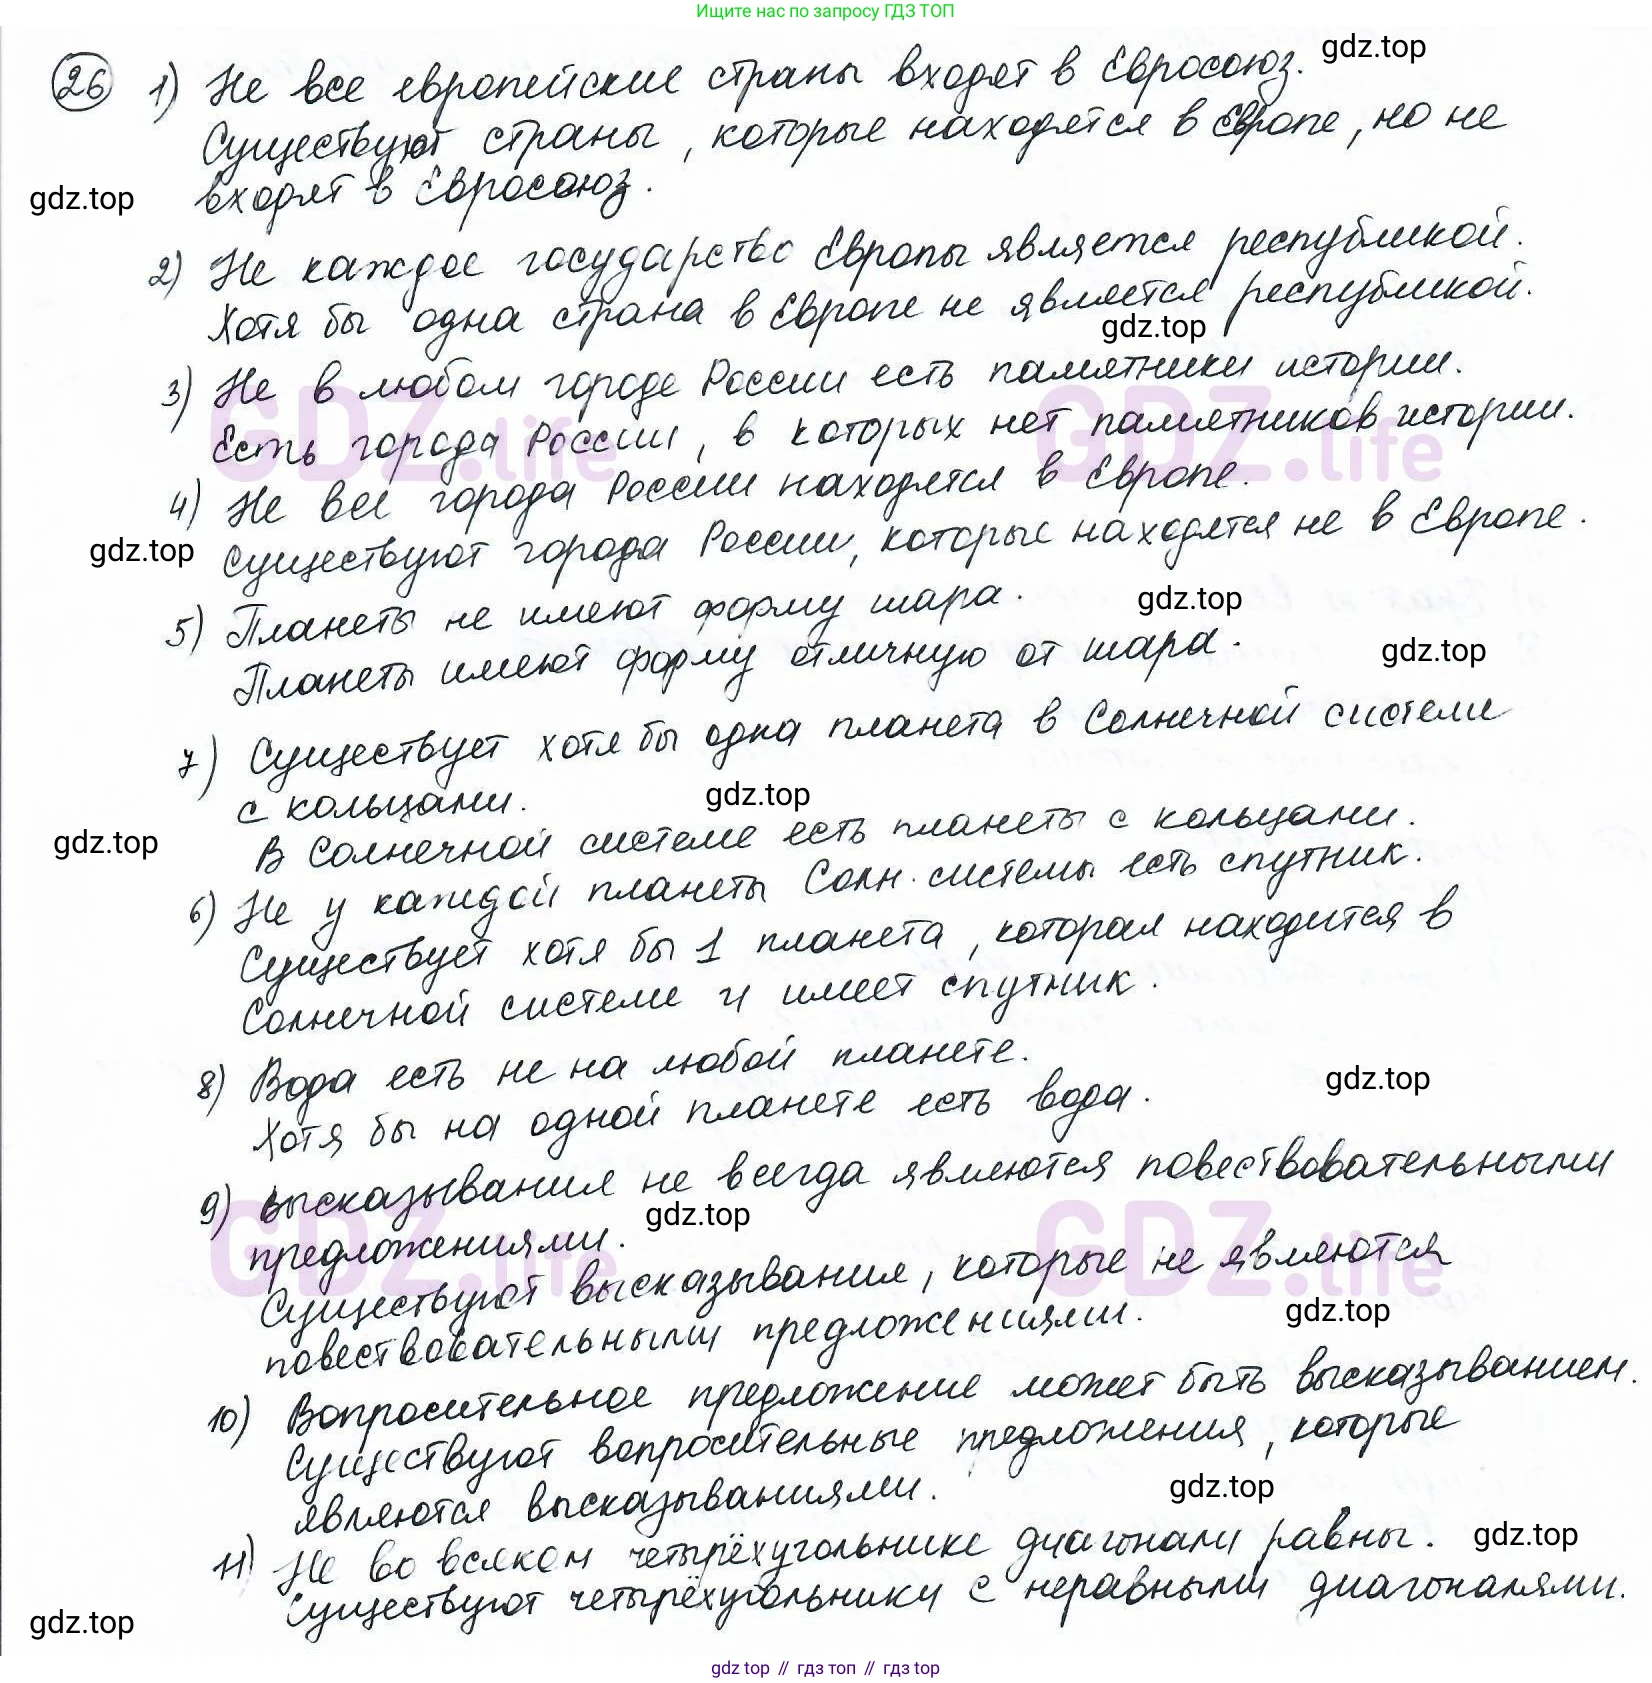 Ищите нас по запросу ГДЗ ТОП
gdz.top
26 1) Не все европейские страны входят в Евросоюз.
Существуют страны, которые находятся в Европе, но не
gdz.top
входят в Евросоюз.
2) Не каждое государство Европы является республикой.
Хотя бы одна страна в Европе не является республикой.
gdz.top
3) Не в любом городе России есть памятники истории.
GDZ.life GDZ.life
Есть города России, в которых нет памятников истории.
4) Не все города России находятся в Европе.
gdz.top
Существуют города России, которые находятся не в Европе.
5) Планеты не имеют форму шара.
gdz.top
Планеты имеют форму отличную от шара.
gdz.top
7) Существует хотя бы одна планета в Солнечной системе
с кольцами.
gdz.top
gdz.top
В Солнечной системе есть планеты с кольцами.
6) Не у каждой планеты Солн. системы есть спутник.
Существует хотя бы 1 планета, которая находится в
Солнечной системе и имеет спутник.
8) Вода есть не на любой планете.
gdz.top
Хотя бы на одной планете есть вода.
9) высказывания не всегда являются повествовательными
gdz.top
предложениями.
GDZ.life GDZ.life
Существуют высказывания, которые не являются
gdz.top
повествовательными предложениями.
10) Вопросительное предложение может быть высказыванием.
Существуют вопросительные предложения, которые
являются высказываниями.
gdz.top
11) Не во всяком четырёхугольнике диагонали равны.
gdz.top
Существуют четырёхугольники с неравными диагоналями.
gdz.top
gdz top // гдз топ // gdz top